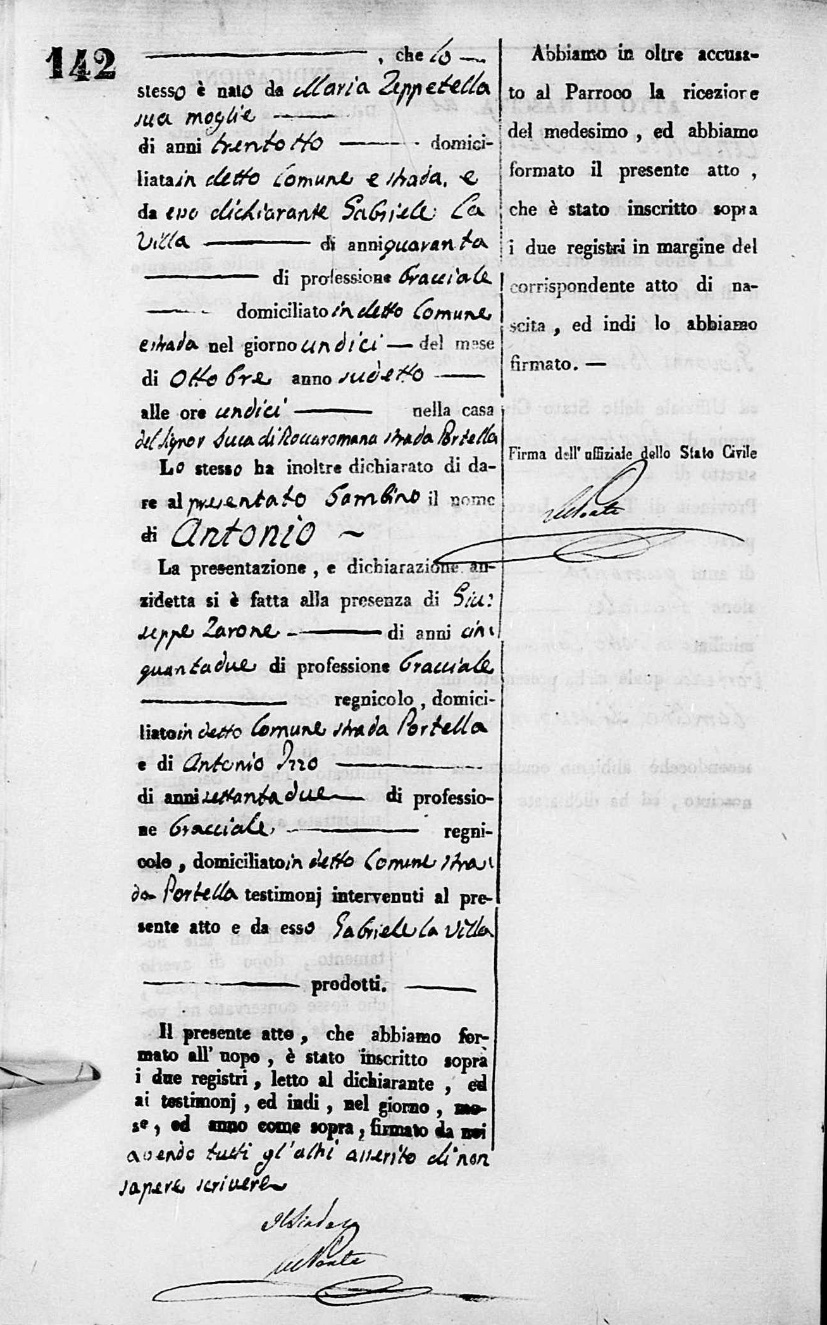 142
, che lo
stesso è nato da Maria Zeppetella
sua moglie
di anni trentotto domici-
liata in detto Comune e strada, e
da esso dichiarante Gabriele La
Villa di anni quaranta
di professione bracciale
domiciliato in detto Comune
e strada nel giorno undici del mese
di Ottobre anno sudetto
alle ore undici nella casa
del Signor Duca di Roccaromana strada Portella
Lo stesso ha inoltre dichiarato di da-
re al presentato bambino il nome
di Antonio
La presentazione, e dichiarazione an-
zidetta si è fatta alla presenza di Giu:
seppe Zarone di anni cin:
quantadue di professione bracciale
regnicolo, domici-
liato in detto Comune strada Portella
e di Antonio Izzo
di anni settantadue di professio-
ne bracciale regni-
colo, domiciliato in detto Comune stra:
da Portella testimonj intervenuti al pre-
sente atto e da esso Gabriele la Villa
prodotti.
Il presente atto, che abbiamo for-
mato all' uopo, è stato inscritto sopra
i due registri, letto al dichiarante, ed
ai testimonj, ed indi, nel giorno, me-
se, ed anno come sopra, firmato da noi
avendo tutti gl'altri asserito di non
sapere scrivere
Il Sindaco
Abbiamo in oltre accusa-
to al Parroco la ricezione
del medesimo, ed abbiamo
formato il presente atto,
che è stato inscritto sopra
i due registri in margine del
corrispondente atto di na-
scita, ed indi lo abbiamo
firmato. —
Firma dell' uffiziale dello Stato Civile